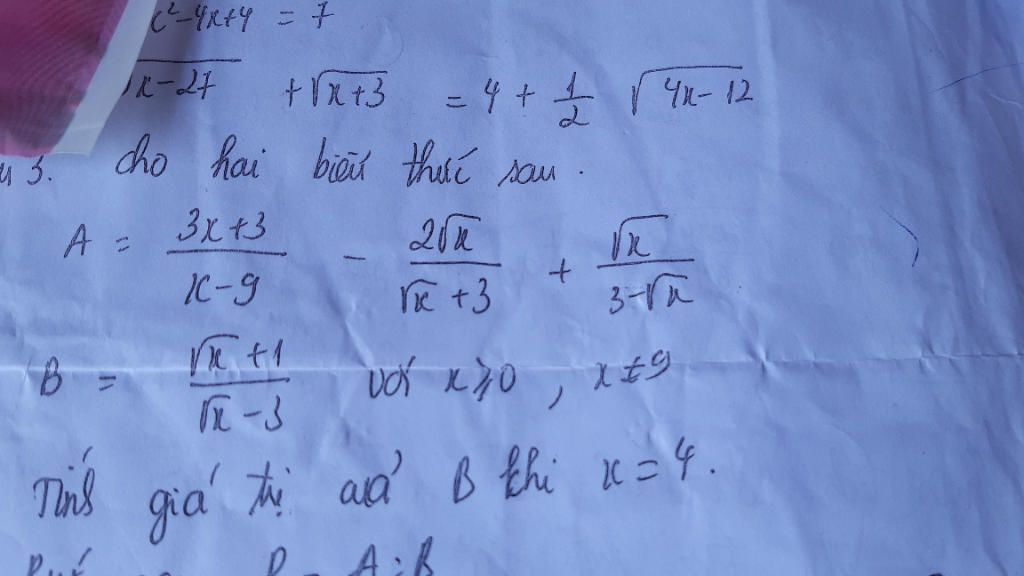 x²-4x+4 = 7
√x-27 + √x+3 = 4 + 1/2 √4x-12
3. cho hai biểu thức sau.
A = 3x+3/x-9 - 2√x/√x+3 + √x/3-√x
B = √x+1/√x-3 với x≥0, x≠9
Tính giá trị của B khi x=4.
P = A:B